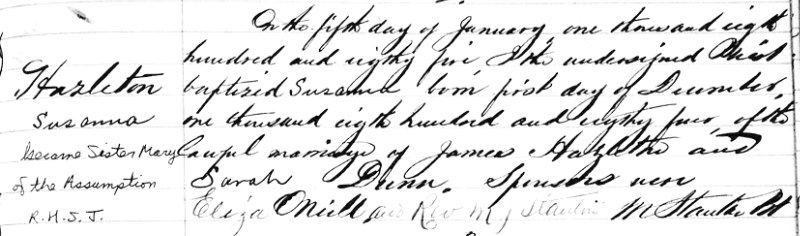 On the fifth day of January, one thousand eight
hundred and eighty five, I the undersigned Priest
Hazleton
baptized Susanna born first day of December,
Susanna
one thousand eigth hundred and eighty four, of the
became Sister Mary
lawful marriage of James Hazleton and
of the Assumption
Sarah Dunn. Sponsors were
R.H.S.J.
Eliza O'Neill and Rev M J Stanton M Stanton Pt